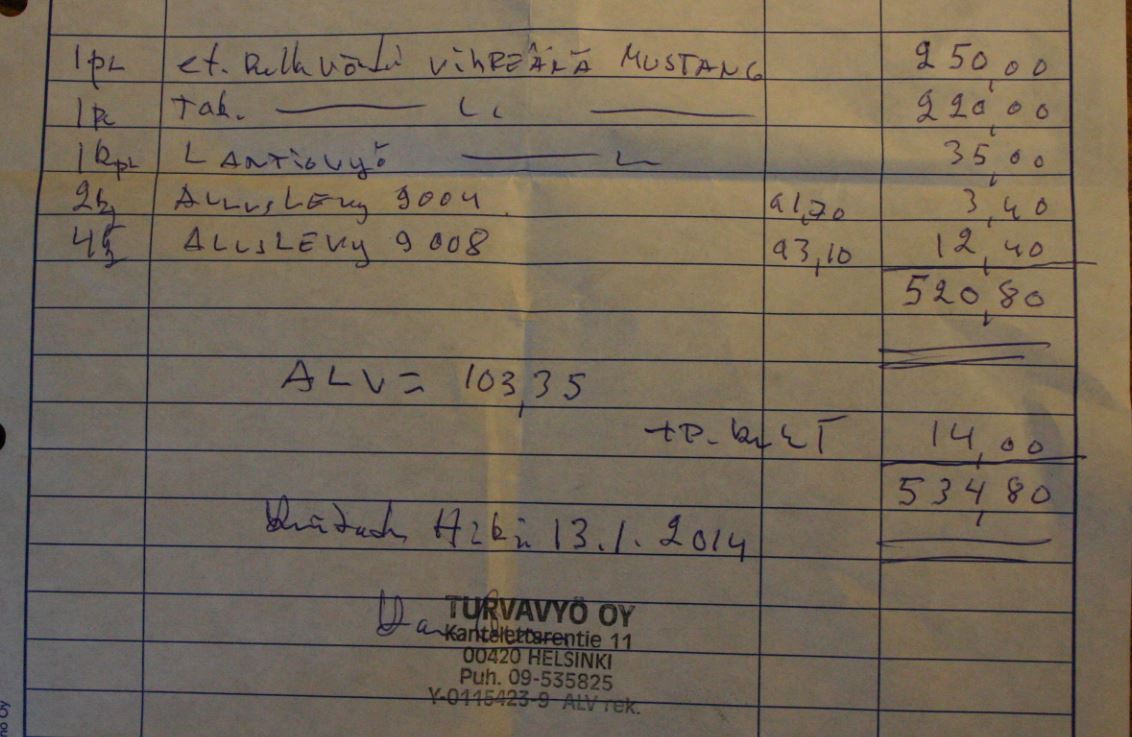 1 pr et. Rullavyöt vihREÄNÄ MUSTANG 250,00
Tak. —— LL —— 220,00
LANTIOVYÖ —— 35,00
ALUSLEVY 9004 á1,70 3,40
ALUSLEVY 9008 á3,10 12,40
520,80
ALV = 103,35
14,00
534,80
13.1.2014
TURVAVYÖ OY
Kantelettarentie 11
00420 HELSINKI
Puh. 09-535825
Y-0115423-9 ALV rek.